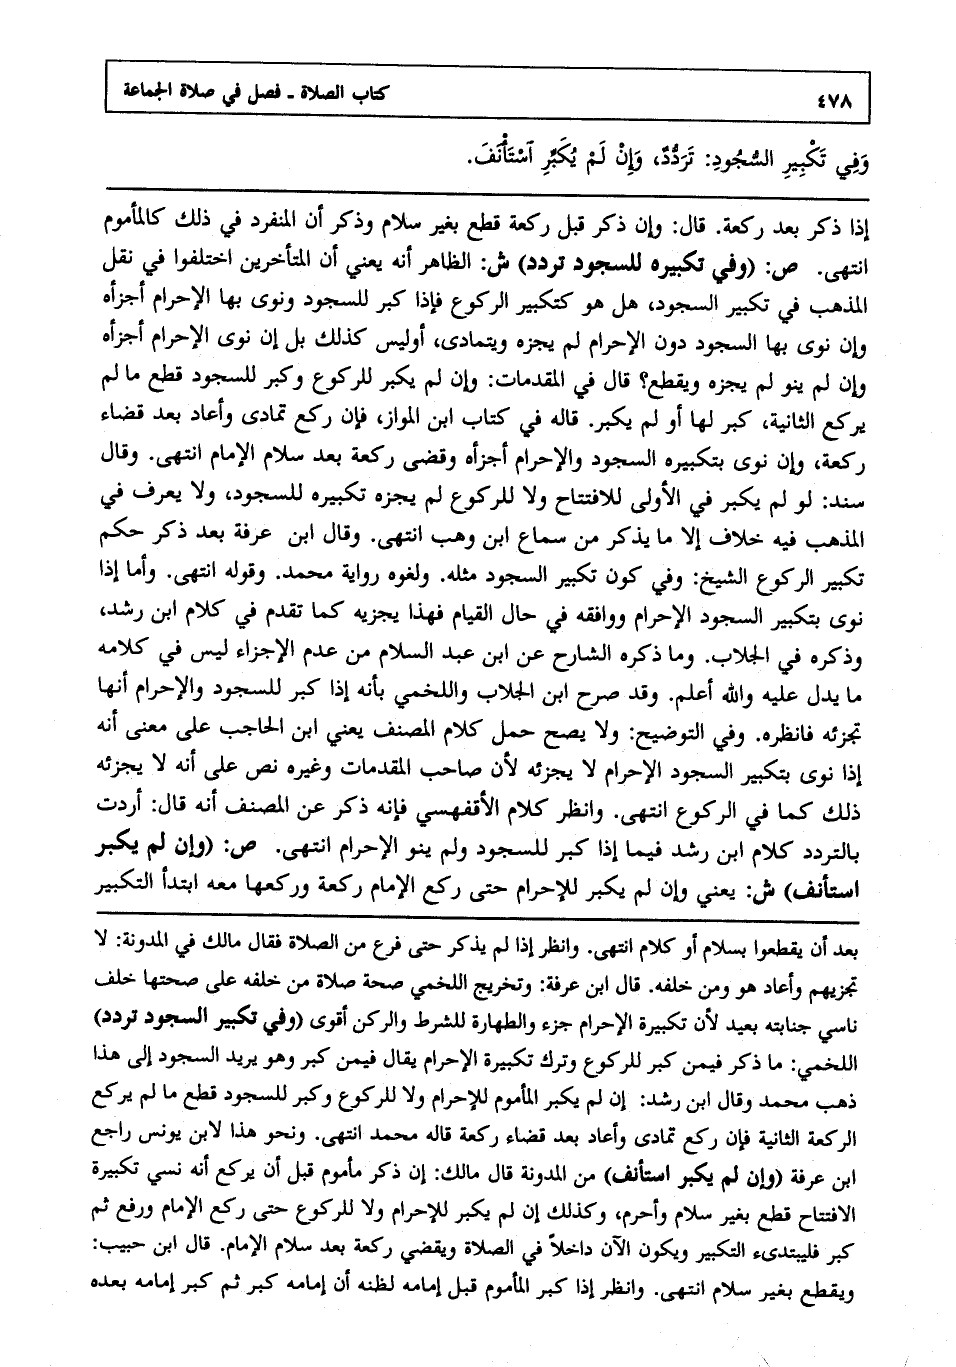 ٤٧٨
كتاب الصلاة ـ فصل في صلاة الجماعة
وَفِي تَكْبِيرِ السُّجُودِ: تَرَدُّدٌ، وَإِنْ لَمْ يُكَبِّرِ ٱسْتَأْنَفَ.
إذا ذكر بعد ركعة. قال: وإن ذكر قبل ركعة قطع بغير سلام وذكر أن المنفرد في ذلك كالمأموم
انتهى. ص: (وفي تكبيره للسجود تردد) ش: الظاهر أنه يعني أن المتأخرين اختلفوا في نقل
المذهب في تكبير السجود، هل هو كتكبير الركوع فإذا كبر للسجود ونوى بها الإحرام أجزأه
وإن نوى بها السجود دون الإحرام لم يجزه ويتمادى، أوليس كذلك بل إن نوى الإحرام أجزأه
وإن لم ينو لم يجزه ويقطع؟ قال في المقدمات: وإن لم يكبر للركوع وكبر للسجود قطع ما لم
يركع الثانية، كبر لها أو لم يكبر. قاله في كتاب ابن المواز، فإن ركع تمادى وأعاد بعد قضاء
ركعة، وإن نوى بتكبيره السجود والإحرام أجزأه وقضى ركعة بعد سلام الإمام انتهى. وقال
سند: لو لم يكبر في الأولى للافتتاح ولا للركوع لم يجزه تكبيره للسجود، ولا يعرف في
المذهب فيه خلاف إلا ما يذكر من سماع ابن وهب انتهى. وقال ابن عرفة بعد ذكر حكم
تكبير الركوع الشيخ: وفي كون تكبير السجود مثله. ولغوه رواية محمد. وقوله انتهى. وأما إذا
نوى بتكبير السجود الإحرام ووافقه في حال القيام فهذا يجزيه كما تقدم في كلام ابن رشد،
وذكره في الجلاب. وما ذكره الشارح عن ابن عبد السلام من عدم الإجزاء ليس في كلامه
ما يدل عليه والله أعلم. وقد صرح ابن الجلاب واللخمي بأنه إذا كبر للسجود والإحرام أنها
تجزئه فانظره. وفي التوضيح: ولا يصح حمل كلام المصنف يعني ابن الحاجب على معنى أنه
إذا نوى بتكبير السجود الإحرام لا يجزئه لأن صاحب المقدمات وغيره نص على أنه لا يجزئه
ذلك كما في الركوع انتهى. وانظر كلام الأقفهسي فإنه ذكر عن المصنف أنه قال: أردت
بالتردد كلام ابن رشد فيما إذا كبر للسجود ولم ينو الإحرام انتهى. ص: (وإن لم يكبر
استأنف) ش: يعني وإن لم يكبر للإحرام حتى ركع الإمام ركعة وركعها معه ابتدأ التكبير
بعد أن يقطعوا بسلام أو كلام انتهى. وانظر إذا لم يذكر حتى فرع من الصلاة فقال مالك في المدونة: لا
تجزيهم وأعاد هو ومن خلفه. قال ابن عرفة: وتخريج اللخمي صحة صلاة من خلفه على صحتها خلف
ناسي جنابته بعيد لأن تكبيرة الإحرام جزء والطهارة للشرط والركن أقوى (وفي تكبير السجود تردد)
اللخمي: ما ذكر فيمن كبر للركوع وترك تكبيرة الإحرام يقال فيمن كبر وهو يريد السجود إلى هذا
ذهب محمد وقال ابن رشد: إن لم يكبر المأموم للإحرام ولا للركوع وكبر للسجود قطع ما لم يركع
الركعة الثانية فإن ركع تمادى وأعاد بعد قضاء ركعة قاله محمد انتهى. ونحو هذا لابن يونس راجع
ابن عرفة (وإن لم يكبر استأنف) من المدونة قال مالك: إن ذكر مأموم قبل أن يركع أنه نسي تكبيرة
الافتتاح قطع بغير سلام وأحرم، وكذلك إن لم يكبر للإحرام ولا للركوع حتى ركع الإمام ورفع ثم
كبر فليبتدىء التكبير ويكون الآن داخلاً في الصلاة ويقضي ركعة بعد سلام الإمام. قال ابن حبيب:
ويقطع بغير سلام انتهى. وانظر إذا كبر المأموم قبل إمامه لظنه أن إمامه كبر ثم كبر إمامه بعده